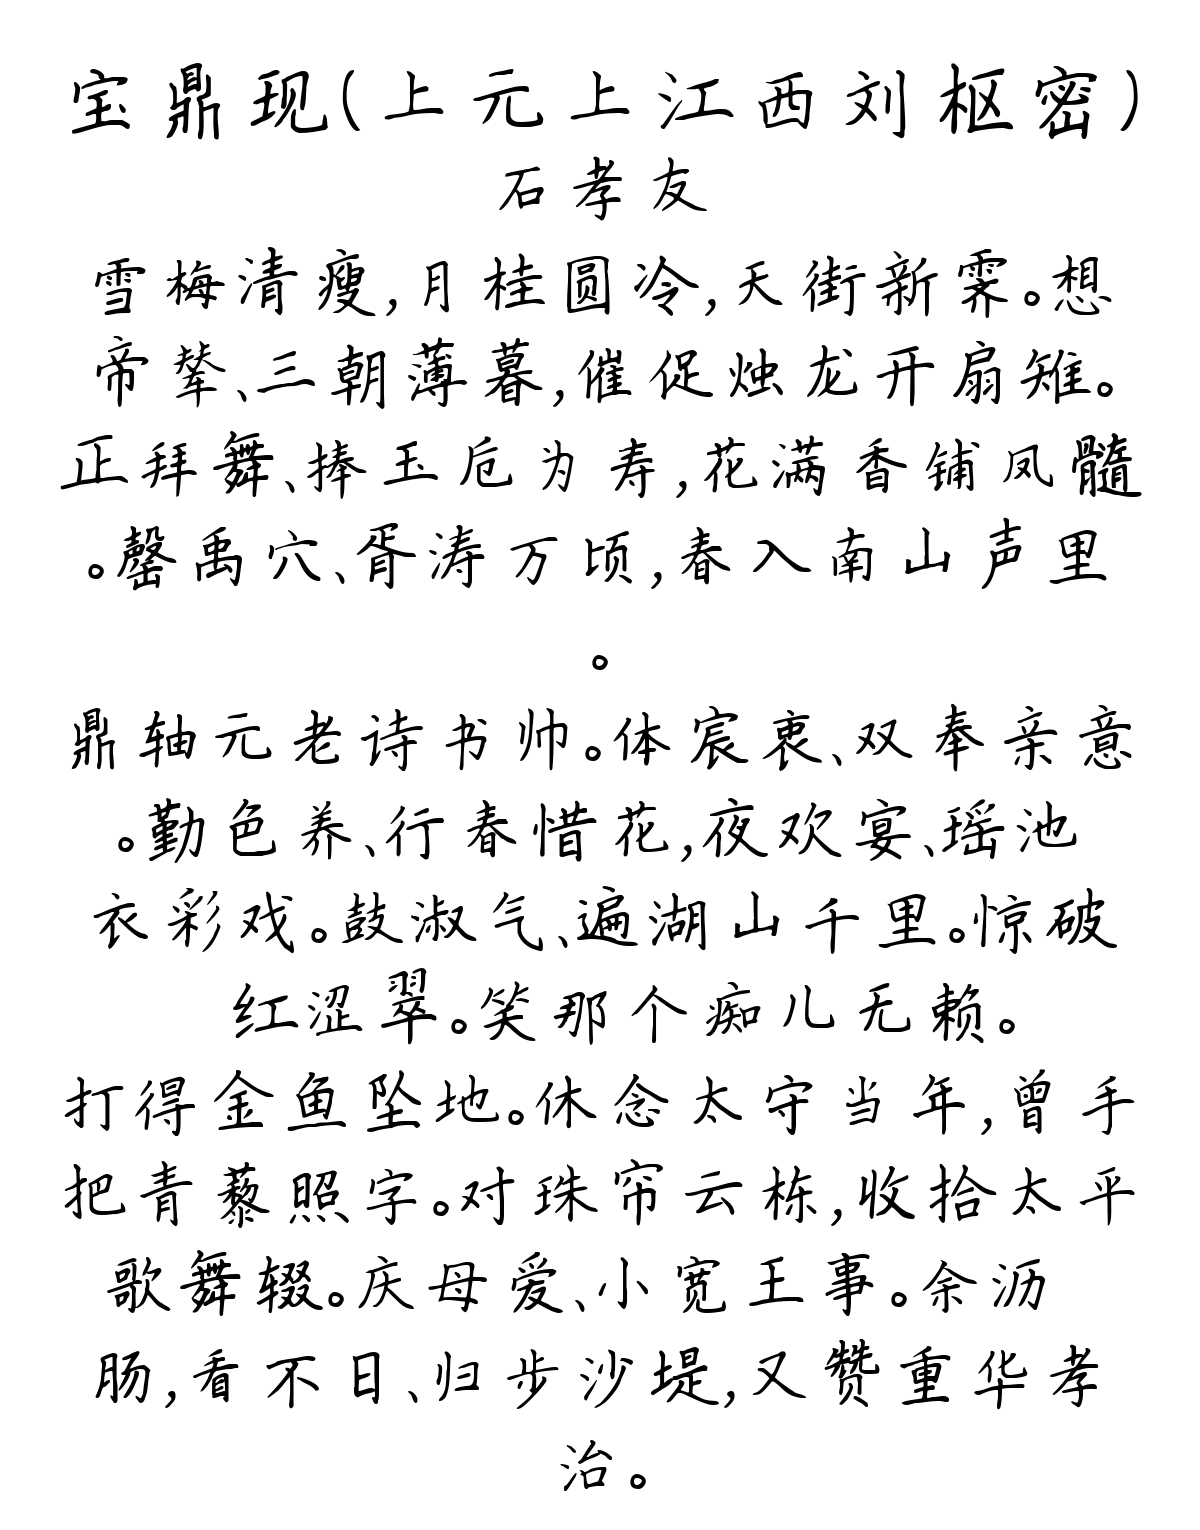 宝鼎现(上元上江西刘枢密)
石孝友
雪梅清瘦,月桂圆冷,天街新霁。想
帝辇、三朝薄暮,催促烛龙开扇雉。
正拜舞、捧玉卮为寿,花满香铺凤髓
。罄禹穴、胥涛万顷,春入南山声里
。
鼎轴元老诗书帅。体宸衷、双奉亲意
。勤色养、行春惜花,夜欢宴、瑶池
衣彩戏。鼓淑气、遍湖山千里。惊破
红涩翠。笑那个痴儿无赖。
打得金鱼坠地。休念太守当年,曾手
把青藜照字。对珠帘云栋,收拾太平
歌舞辍。庆母爱、小宽王事。余沥
肠,看不日、归步沙堤,又赞重华孝
治。